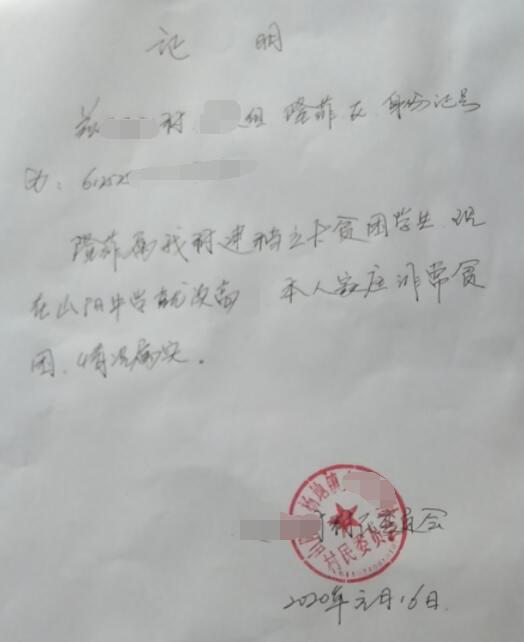 证 明
兹 村 组 隆菲 女 身份证号
为：612525
隆菲属我村建档立卡贫困学生 现
在山阳中学就读高 本人家庭非常贫
困，情况属实。
村民委员会
村民委员会
2020年元月16日